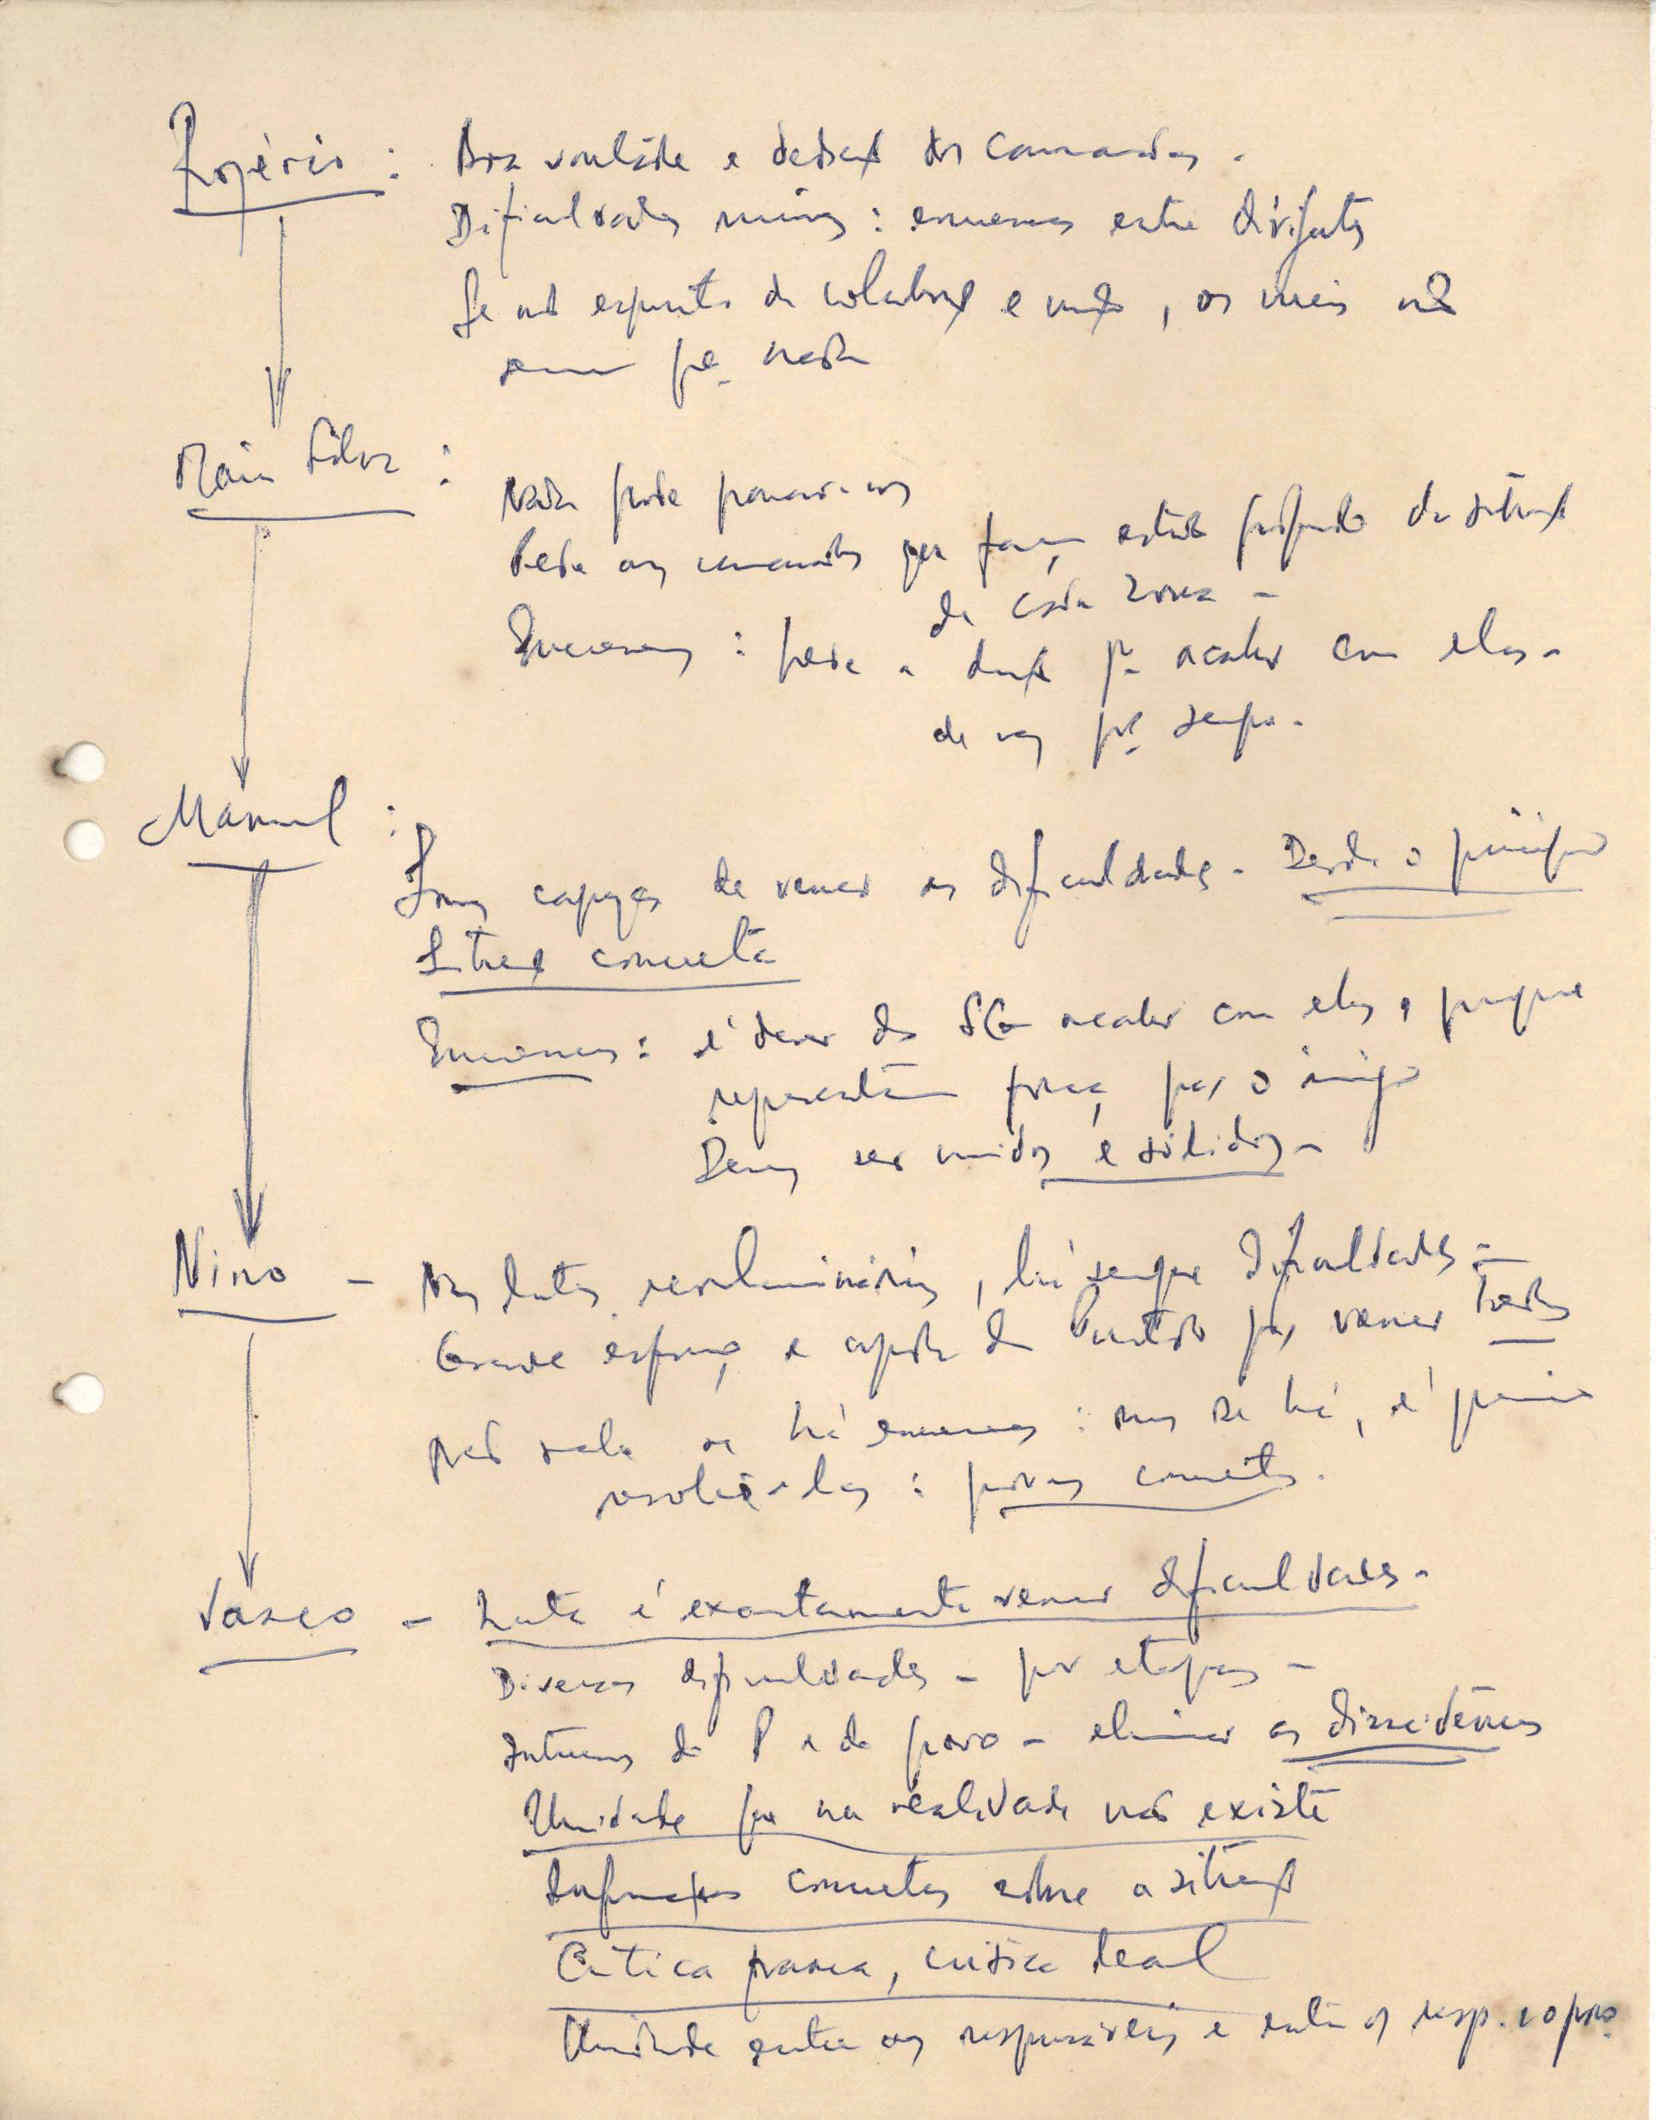 Rogério : Boa vontade e dedicação dos camaradas.
Dificuldades : enuencas entre dirigentes
Se não espírito de colaboração e união, os meios não
servem pª nada
Maria Silva :
Nada pode parar-nos
Pede aos camaradas que façam estudo profundo da situação
de cada zona -
: pede a direcção pª acabar com elas -
de vez pª sempre.
Manuel :
Somos capazes de vencer as dificuldades. Desde o princípio
Situação concreta
: é dever do SG acabar com elas, porque
representam força para o inimigo
Devemos ser unidos e sólidos -
Nino - Nas lutas revolucionárias, há sempre dificuldades -
Grande esforço e ajuda do Partido para vencer todas
Não sabe se há : mas se há, é preciso
resolvê-las : provas concretas.
Vasco - Luta é exactamente vencer dificuldades.
Diversas dificuldades - por etapas -
Internas do P e do povo - eliminar as dissidências
Unidade que na realidade não existe
Informações concretas sobre a situação
Crítica franca, crítica leal
Unidade entre os responsáveis e entre os resp. e o povo.